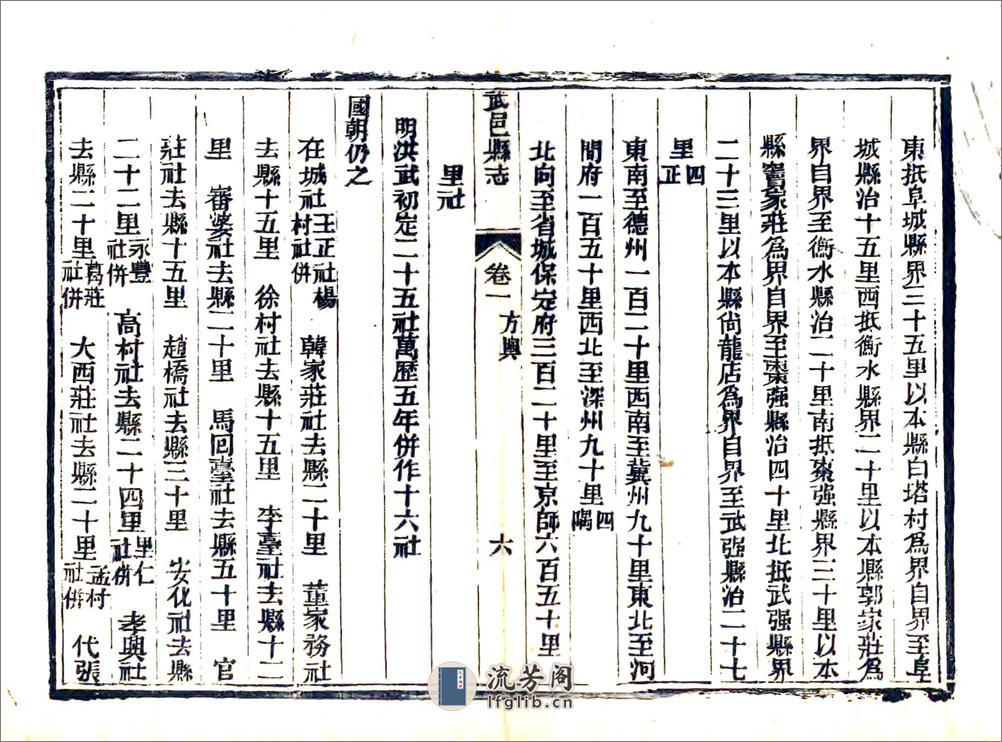 東抵阜城縣界三十五里以本縣白塔村爲界自界至阜
城縣治十五里西抵衡水縣界二十里以本縣郭家莊爲
界自界至衡水縣治二十里南抵棗强縣界三十里以本
縣竇家莊爲界自界至棗强縣治四十里北抵武强縣界
二十三里以本縣尚龍店爲界自界至武强縣治二十七
里四正
東南至德州一百二十里西南至冀州九十里東北至河
間府一百五十里西北至深州九十里四隅
北向至省城保定府三百二十里至京師六百五十里
武邑縣志 卷一 方輿 六
里社
明洪武初定二十五社萬歷五年併作十六社
國朝仍之
在城社王正社楊村社併 韓家莊社去縣二十里 董家務社
去縣十五里 徐村社去縣十五里 李臺社去縣十二
里 審婆社去縣二十里 馬回臺社去縣五十里 官
莊社去縣十五里 趙橋社去縣三十里 安化社去縣
二十二里永豐社併 高村社去縣二十四里里仁社併 孝興社
去縣二十里葛莊社併 大西莊社去縣二十里孟村社併 代張
流芳阁
lfglib.cn